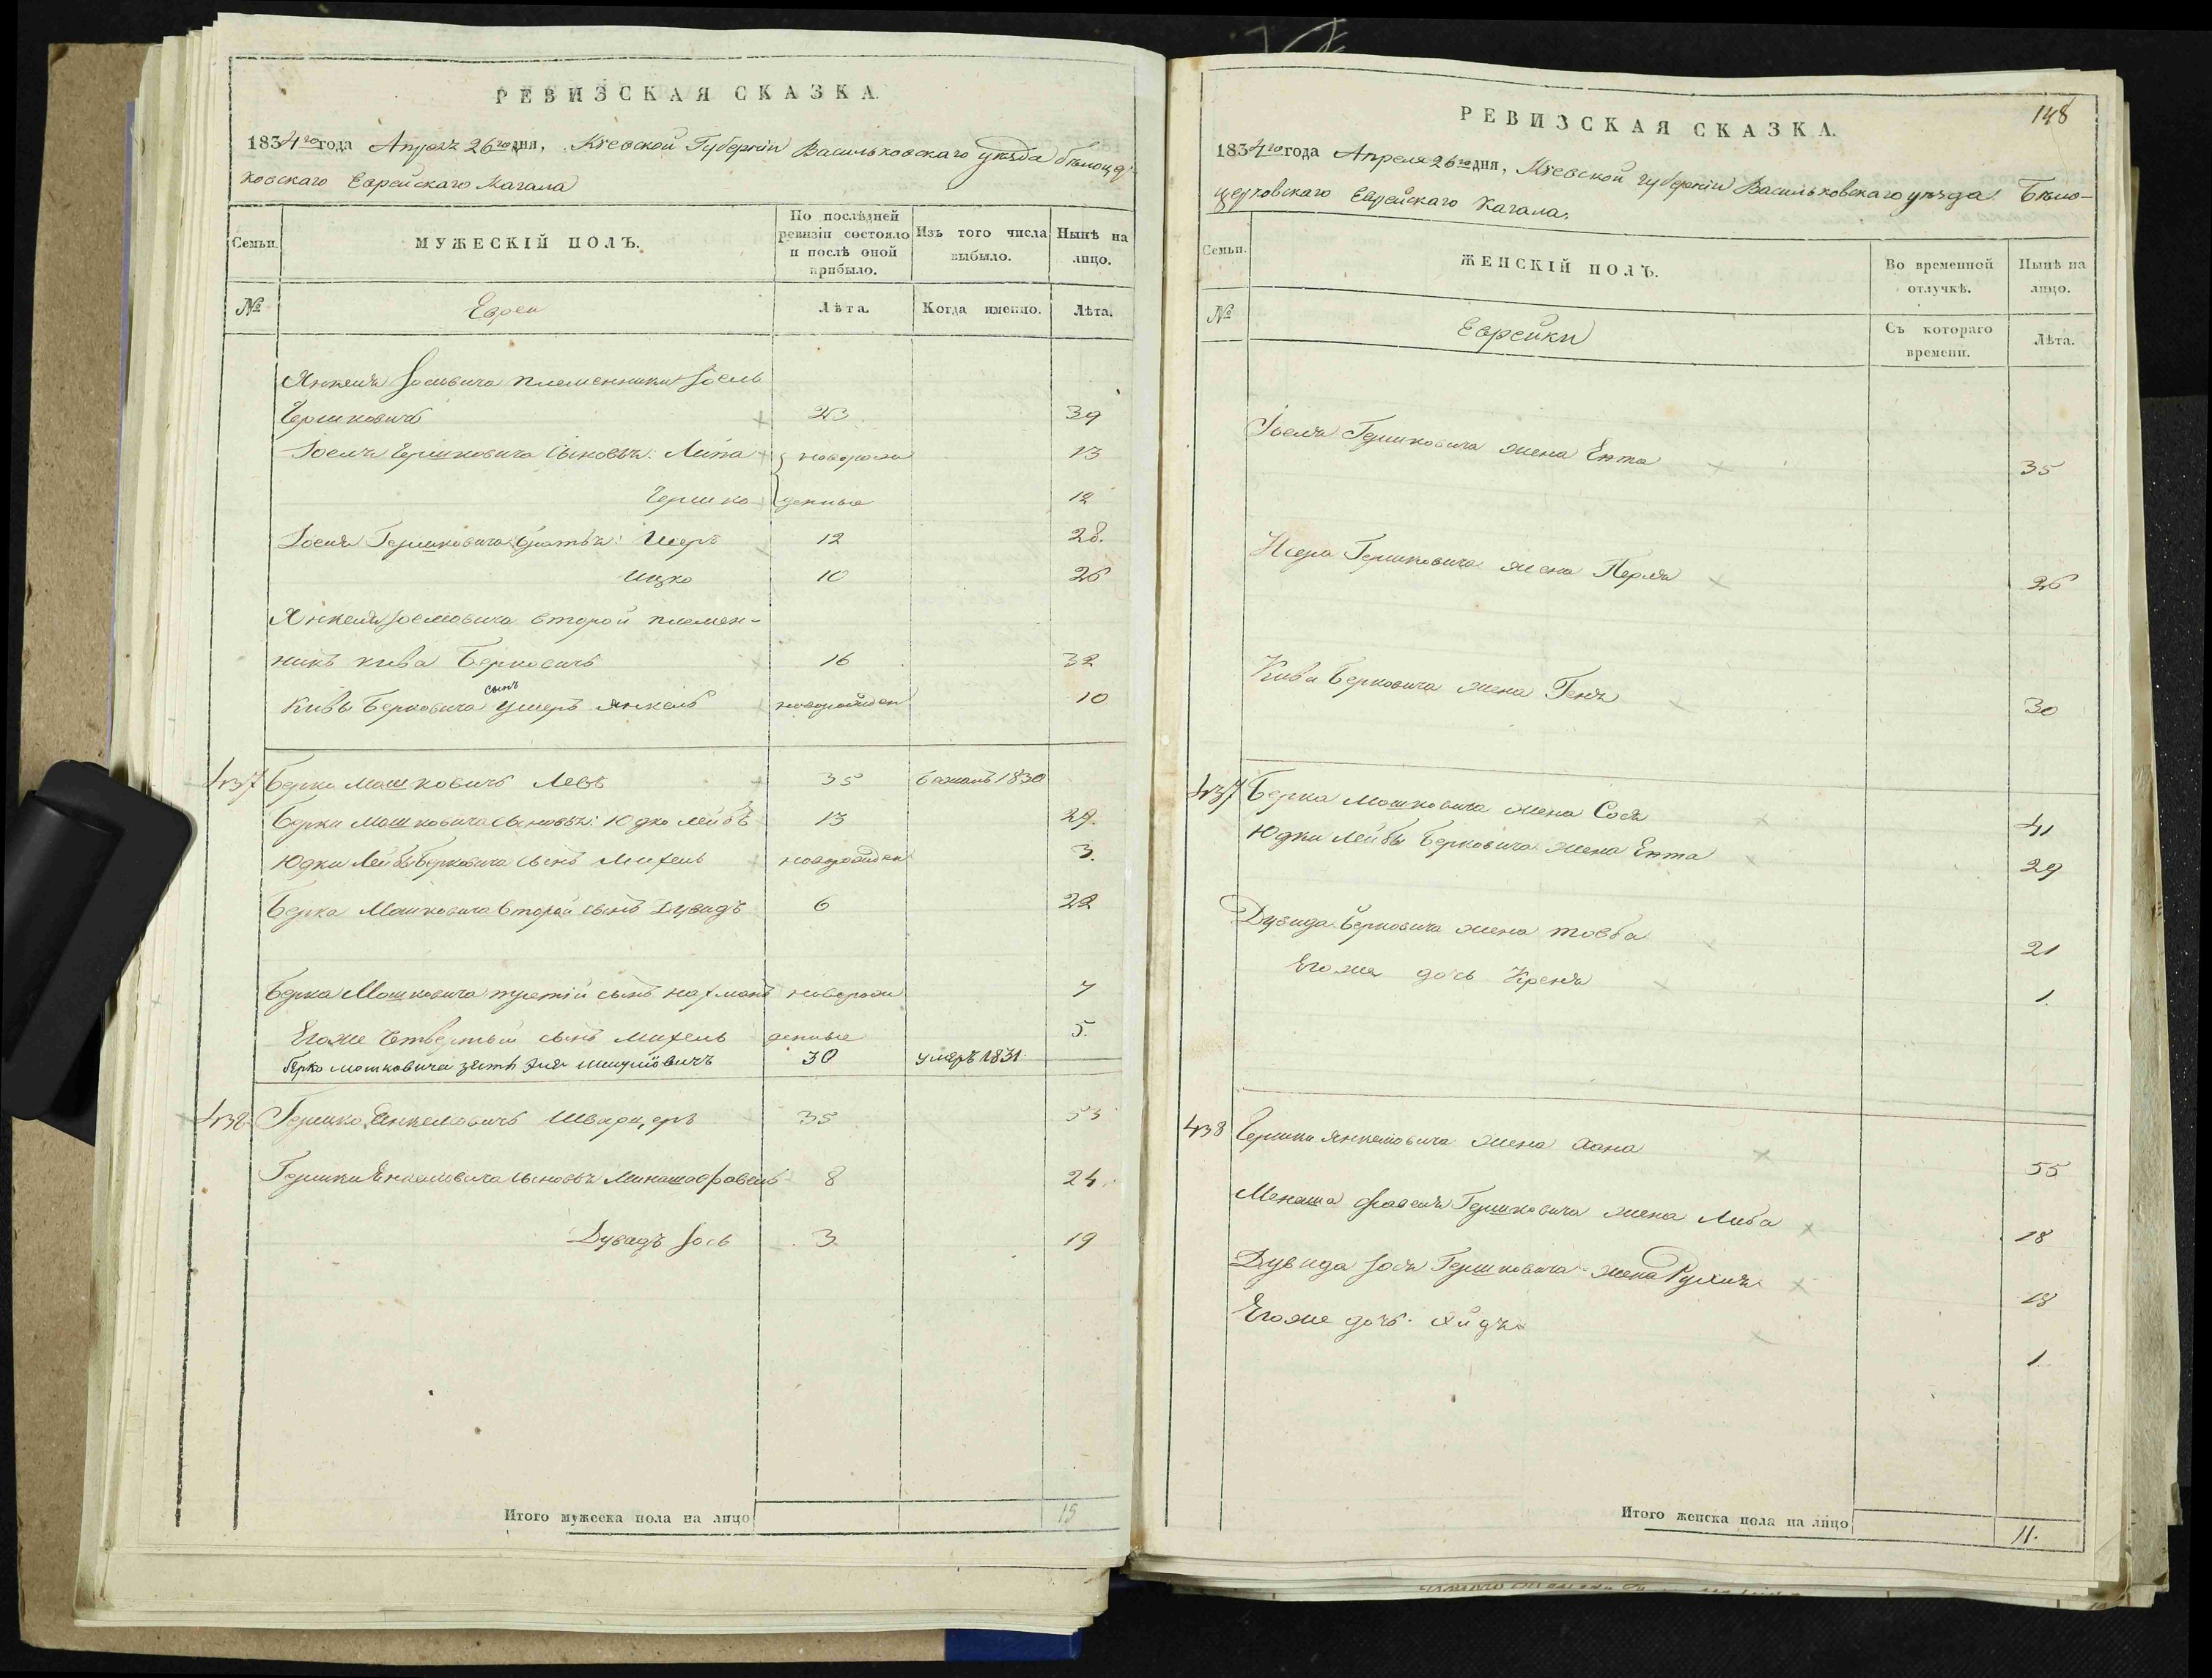 РЕВИЗСКАЯ СКАЗКА.
1834го года Апреля 26го дня, Кіевской Губерніи Васильковскаго уѣзда бѣлоцер
ковскаго Еврейскаго Кагала
Семьи.
МУЖЕСКІЙ ПОЛЪ.
По послѣдней ревизіи состояло и послѣ оной прибыло.
Изъ того числа выбыло.
Нынѣ на лицо.
№
Евреи
Лѣта.
Когда именно.
Лѣта.
Янкеля Іосиовича племенники Іосель
Гершковичъ 23 39
Іоселя Гершковича сыновья: Липа новорож 13
Гершко денные 12
Іоселя Гершковича братья: Шеръ 12 28.
Ицко 10 26
Янкеля Іоселиовича второй племен-
никъ Кива Берковичъ 16 32
сынъ
Кивы Берковича Ушеръ Янкель новорожден 10
437 Берко Мошковичъ Левъ 35 бежалъ 1830
Берки Мошковича сыновья: Юдко Лейбъ 13 29.
Юдки Лейбы Берковича сынъ Михель новорожден 3.
Берка Мошковича второй сынъ Дувидъ 6 22
Берка Мошковича третій сынъ Нахманъ новорож 7
Егоже четвертый сынъ Михель денные 5.
Берко Мошковича зять 30 умеръ 1831.
438 Гершко Янкелиовичъ Шварцеръ 35 53
Гершки Янкелиовича сыновья Минаша Фравель 8 24.
Дувидъ Іось 3 19
Итого мужеска пола на лицо 15
148
РЕВИЗСКАЯ СКАЗКА.
1834го года Апреля 26го дня, Кіевской Губерніи Васильковскаго уѣзда Бѣло-
церковскаго Еврейскаго Кагала.
Семьи.
ЖЕНСКІЙ ПОЛЪ.
Во временной отлучкѣ.
Нынѣ на лицо.
№
Еврейки
Съ котораго времени.
Лѣта.
Іоселя Гершковича жена Ента 35
Гершковича жена Перля 26
Кива Берковича жена Геня 30
437 Берка Мошковича жена Сося 41
Юдки Лейбы Берковича жена Ента 29
Дувида Берковича жена Товба 21
Егоже дочь Креня 1.
438 Гершки Янкелиовича жена Хана 55
Менаша Фравеля Гершковича жена Либа 18
Дувида Іося Гершковича жена Рухля 18
Егоже дочь Хйдя 1
Итого женска пола на лицо 11.